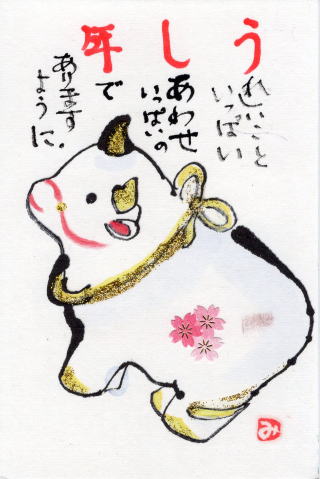 うれしいことと
いっぱい
しあわせ
いっぱいの
年で
あります
ように。
み